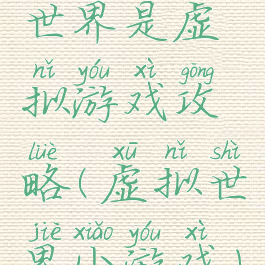 世界是虚
nǐ yóu xì gōng
拟游戏攻
lüè xū nǐ shì
略(虚拟世
jiè xiǎo yóu xì
界小游戏)